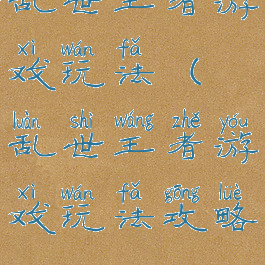 乱世王者游
xì wán fǎ
戏玩法（
luàn shì wáng zhě yóu
乱世王者游
xì wán fǎ gōng lüè
戏玩法攻略